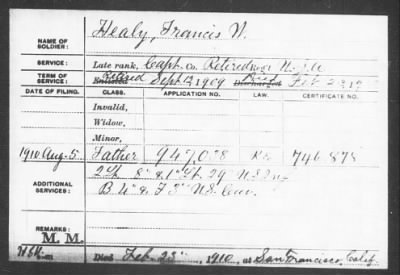 NAME OF SOLDIER: Healy, Francis N.
SERVICE: Late rank, Capt. Co. Retired Reg't U.S.A
TERM OF SERVICE: Enlisted Retired Sept 12 1909 Discharged Died Feb 23 19
DATE OF FILING. CLASS. APPLICATION NO. LAW. CERTIFICATE NO.
Invalid,
Widow,
Minor,
1910 Aug. 5 Father 947058 746878
ADDITIONAL SERVICES: 2" & 1" Lt. 29 U.S. Inf
B 4" & F 3" U.S. Cav.
REMARKS:
M. M.
Died Feb. 23", 1910, at San Francisco, Calif